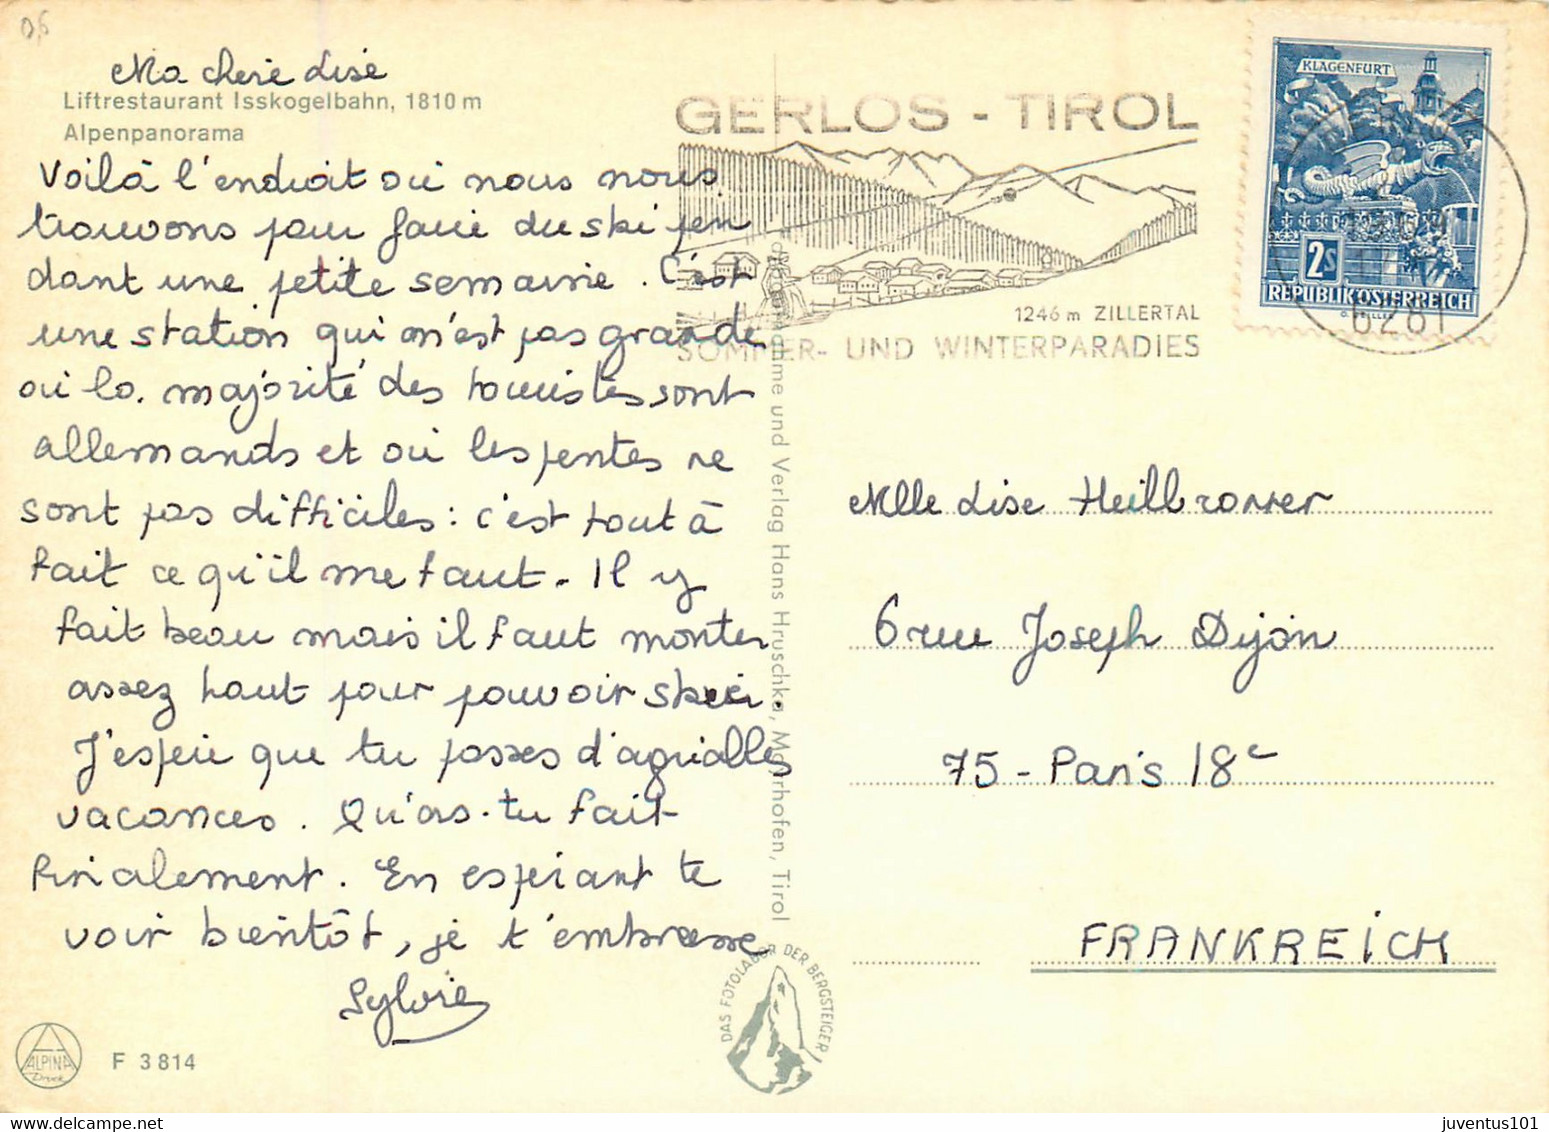 Ma cherie Lise
Liftrestaurant Isskogelbahn, 1810 m
Alpenpanorama
Voilà l'endroit où nous nous
trouvons pour faire du ski pen
dant une petite semaine. C'est
une station qui n'est pas grande
où la majorité des touristes sont
allemands et où les pentes ne
sont pas difficiles : c'est tout à
fait ce qu'il me faut. Il y
fait beau mais il faut monter
assez haut pour pouvoir skier.
J'espère que tu passes d'agréables
vacances. Qu'as-tu fait
finalement. En espérant te
voir bientôt, je t'embrasse
Sylvie
ALPINA
Druck
F 3814
GERLOS - TIROL
1246 m ZILLERTAL
SOMMER- UND WINTERPARADIES
KLAGENFURT
2S
REPUBLIK ÖSTERREICH
6281
und Verlag Hans Hruschka, Mayrhofen, Tirol
DAS FOTOLABOR DER BERGSTEIGER
Mlle Lise Heilbronner
6 rue Joseph Dijon
75 - Paris 18e
FRANKREICH
juventus101